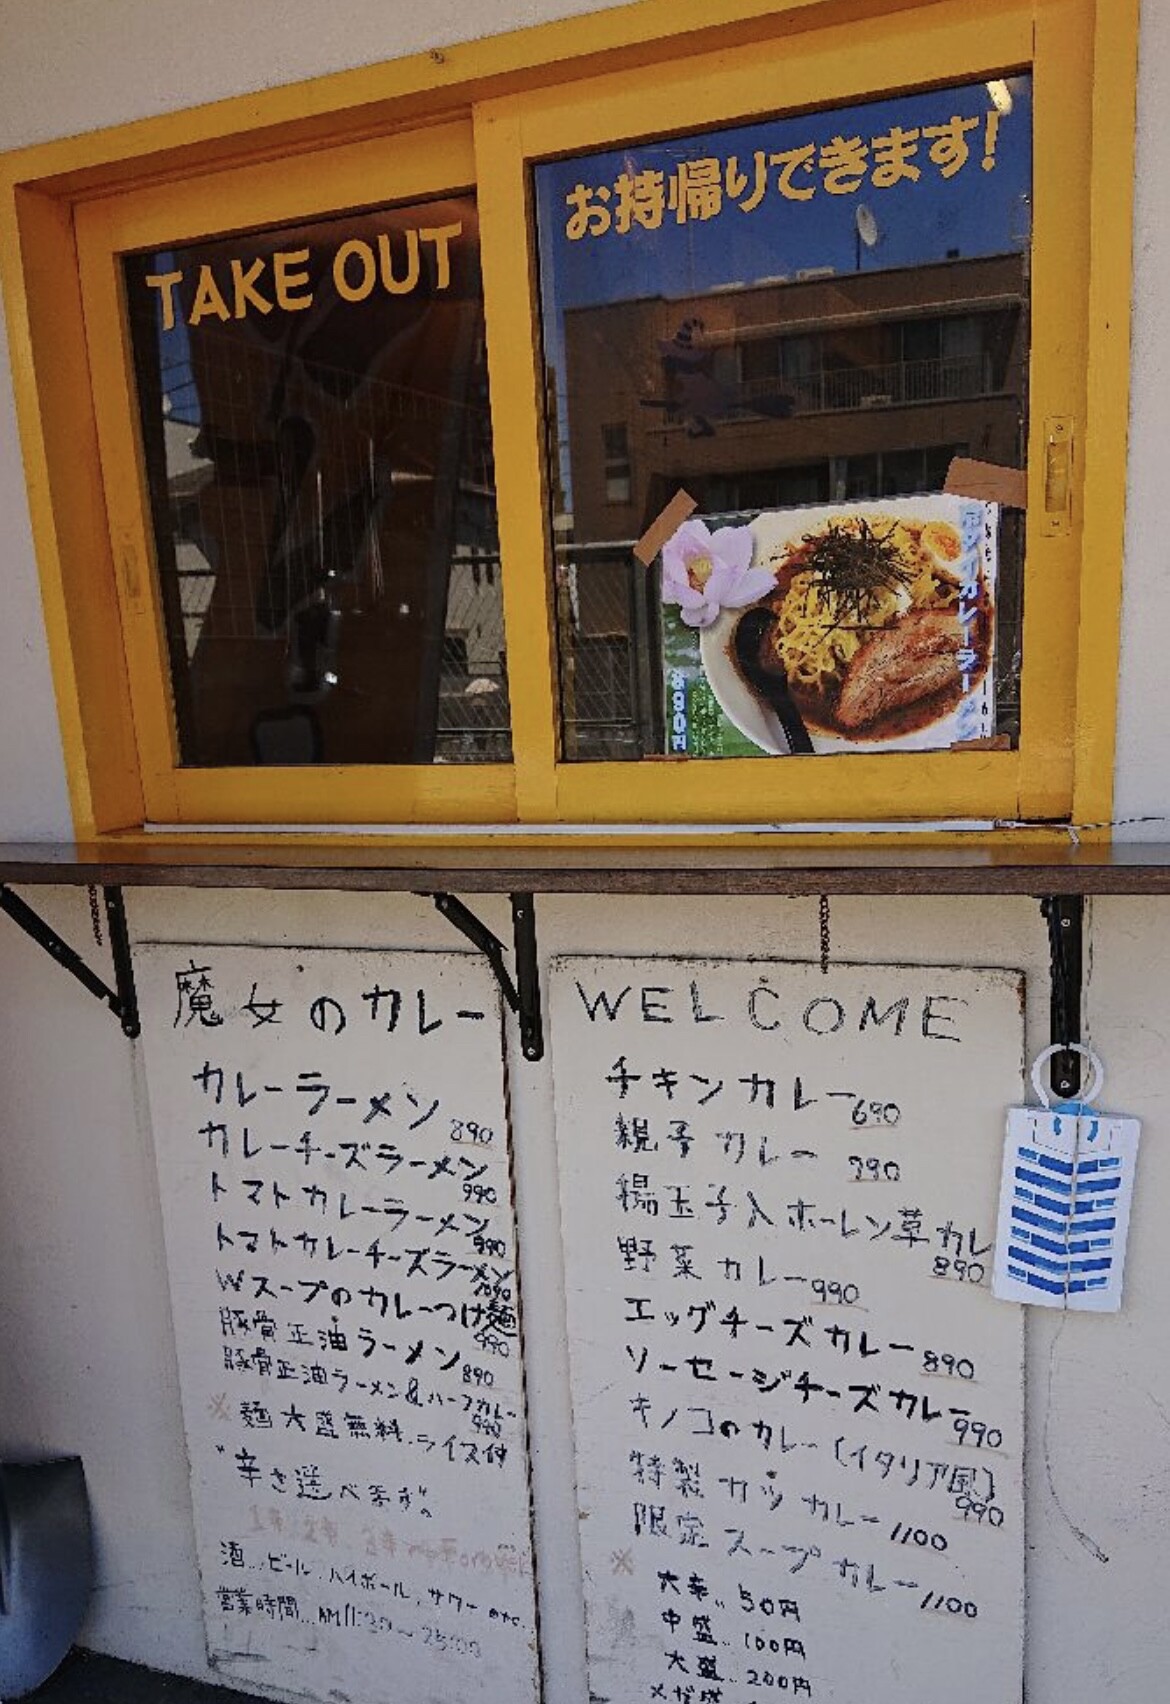 TAKE OUT
お持帰りできます!
アジアンカレーラーメン
890円
魔女のカレー
カレーラーメン 890
カレーチーズラーメン 990
トマトカレーラーメン 990
トマトカレーチーズラーメン 1090
Wスープのカレーつけ麺 990
豚骨正油ラーメン 890
豚骨正油ラーメン&ハーフカレー 990
※麺大盛無料.ライス付
"辛さ選べます"。
酒...ビール.ハイボール.サワー etc.
営業時間...AM11:30〜25:00
WELCOME
チキンカレー 690
親子カレー 990
揚玉子入ホーレン草カレー 890
野菜カレー 990
エッグチーズカレー 890
ソーセージチーズカレー 990
キノコのカレー(イタリア風) 990
特製カツカレー 1100
限定スープカレー 1100
※大辛.. 50円
中盛.. 100円
大盛.. 200円
メガ盛